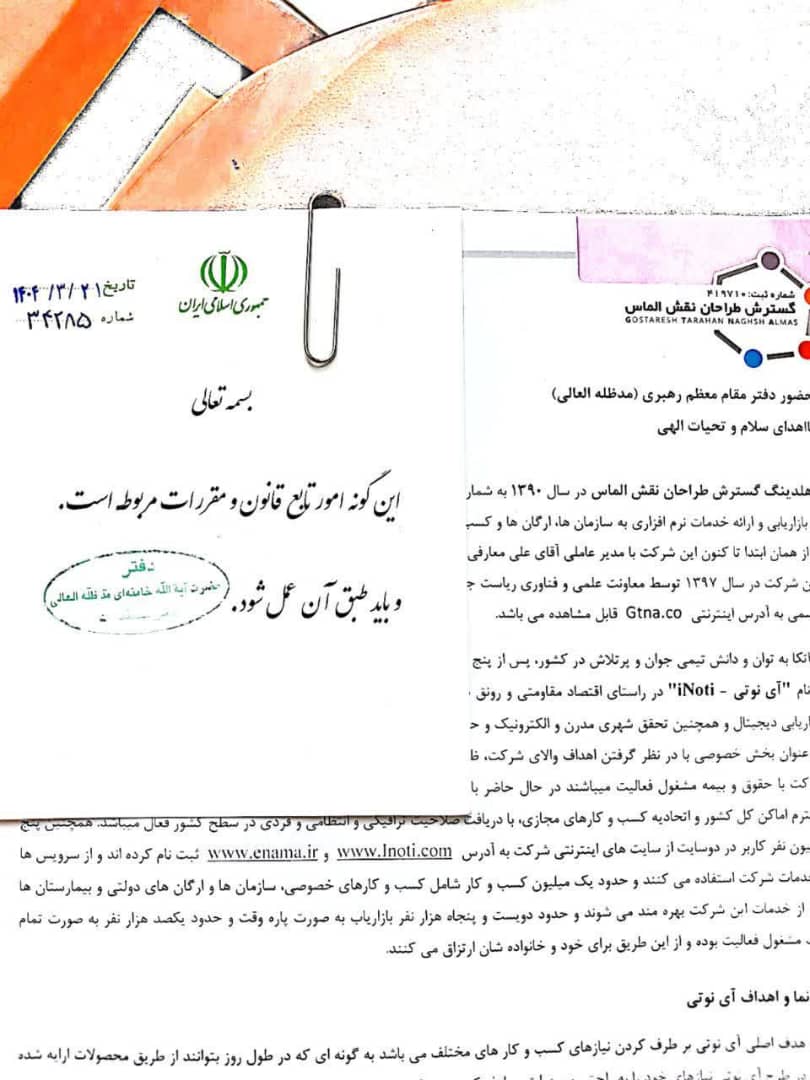 تاریخ ۱۴۰۴/۳/۲۱
شماره ۳۴۲۸۵
جمهوری اسلامی ایران
بسمه تعالی
این گونه امور تابع قانون و مقررات مربوطه است.
و باید طبق آن عمل شود.
دفتر
حضرت آیة الله خامنه‌ای مدظله العالی
شماره ثبت: ۴۱۹۷۱۰
گسترش طراحان نقش الماس
GOSTARESH TARAHAN NAGHSH ALMAS
حضور دفتر مقام معظم رهبری (مدظله العالی)
بااهدای سلام و تحیات الهی
هلدینگ گسترش طراحان نقش الماس در سال ۱۳۹۰ به شمار
بازاریابی و ارائه خدمات نرم افزاری به سازمان ها، ارگان ها و کسب
از همان ابتدا تا کنون این شرکت با مدیر عاملی آقای علی معارفی
ن شرکت در سال ۱۳۹۷ توسط معاونت علمی و فناوری ریاست ج
سمی به آدرس اینترنتی Gtna.co قابل مشاهده می باشد.
اتکا به توان و دانش تیمی جوان و پرتلاش در کشور، پس از پنج
نام "آی نوتی - iNoti" در راستای اقتصاد مقاومتی و رونق
اریابی دیجیتال و همچنین تحقق شهری مدرن و الکترونیک و ح
عنوان بخش خصوصی با در نظر گرفتن اهداف والای شرکت، ظ
کت با حقوق و بیمه مشغول فعالیت میباشند در حال حاضر با
ترم اماکن کل کشور و اتحادیه کسب و کارهای مجازی، با دریافت صلاحیت ترافیکی و انتظامی و فردی در سطح کشور فعال میباشد. همچنین پنج
یون نفر کاربر در دوسایت از سایت های اینترنتی شرکت به آدرس www.Inoti.com و www.enama.ir ثبت نام کرده اند و از سرویس ها
خدمات شرکت استفاده می کنند و حدود یک میلیون کسب و کار شامل کسب و کارهای خصوصی، سازمان ها و ارگان های دولتی و بیمارستان ها
از خدمات این شرکت بهره مند می شوند و حدود دویست و پنجاه هزار نفر بازاریاب به صورت پاره وقت و حدود یکصد هزار نفر به صورت تمام
مشغول فعالیت بوده و از این طریق برای خود و خانواده شان ارتزاق می کنند.
نما و اهداف آی نوتی
هدف اصلی آی نوتی بر طرف کردن نیازهای کسب و کار های مختلف می باشد به گونه ای که در طول روز بتوانند از طریق محصولات ارایه شده